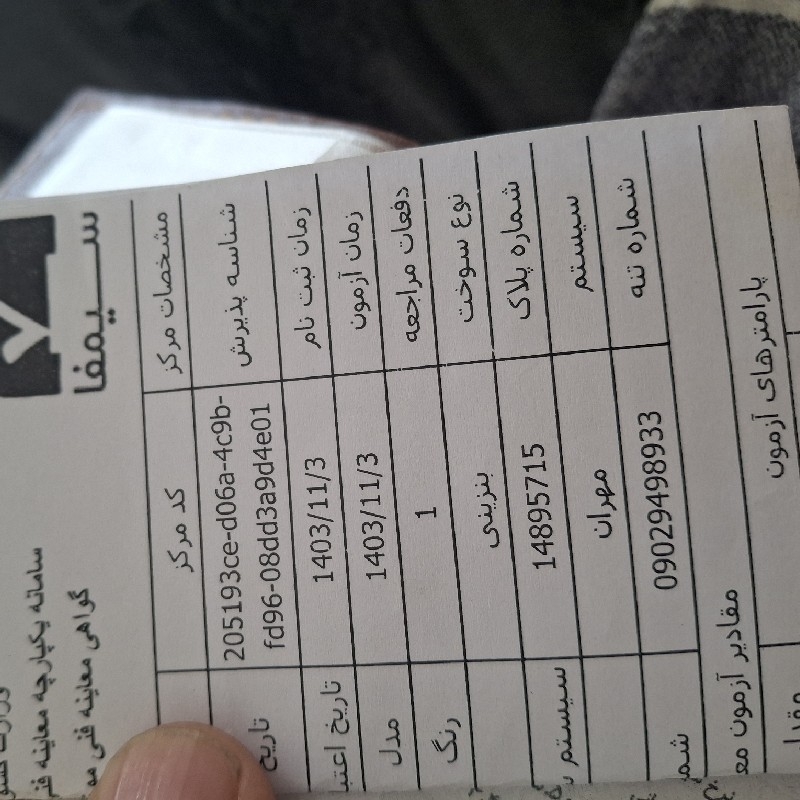 سامانه یکپارچه معاینه
گواهی معاینه فنی
سیمفا
مشخصات مرکز کد مرکز
شناسه پذیرش 205193ce-d06a-4c9b-
fd96-08dd3a9d4e01 تاریخ
زمان ثبت نام 1403/11/3 تاریخ
زمان آزمون 1403/11/3 مدل
دفعات مراجعه 1 رنگ
نوع سوخت بنزینی
شماره پلاک 14895715 سیستم
سیستم مهران
شماره تنه 09029498933
مقادیر آزمون
پارامترهای آزمون